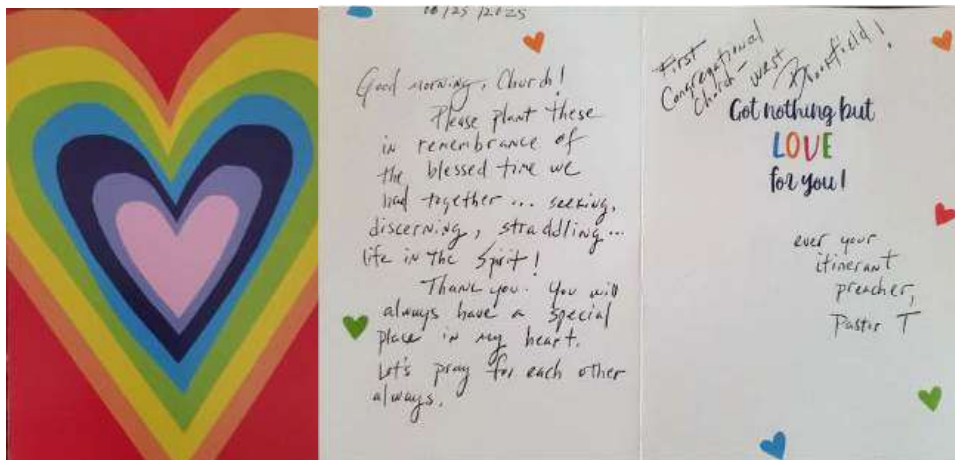 08/25/2025
Good morning, Church!
Please plant these
in remembrance of
the blessed time we
had together... seeking,
discerning, straddling...
life in the Spirit!
Thank you. You will
always have a special
place in my heart.
Let's pray for each other
always.
First
Congregational
Church - West
Brookfield!
Got nothing but
LOVE
for you!
ever your
itinerant
preacher,
Pastor T